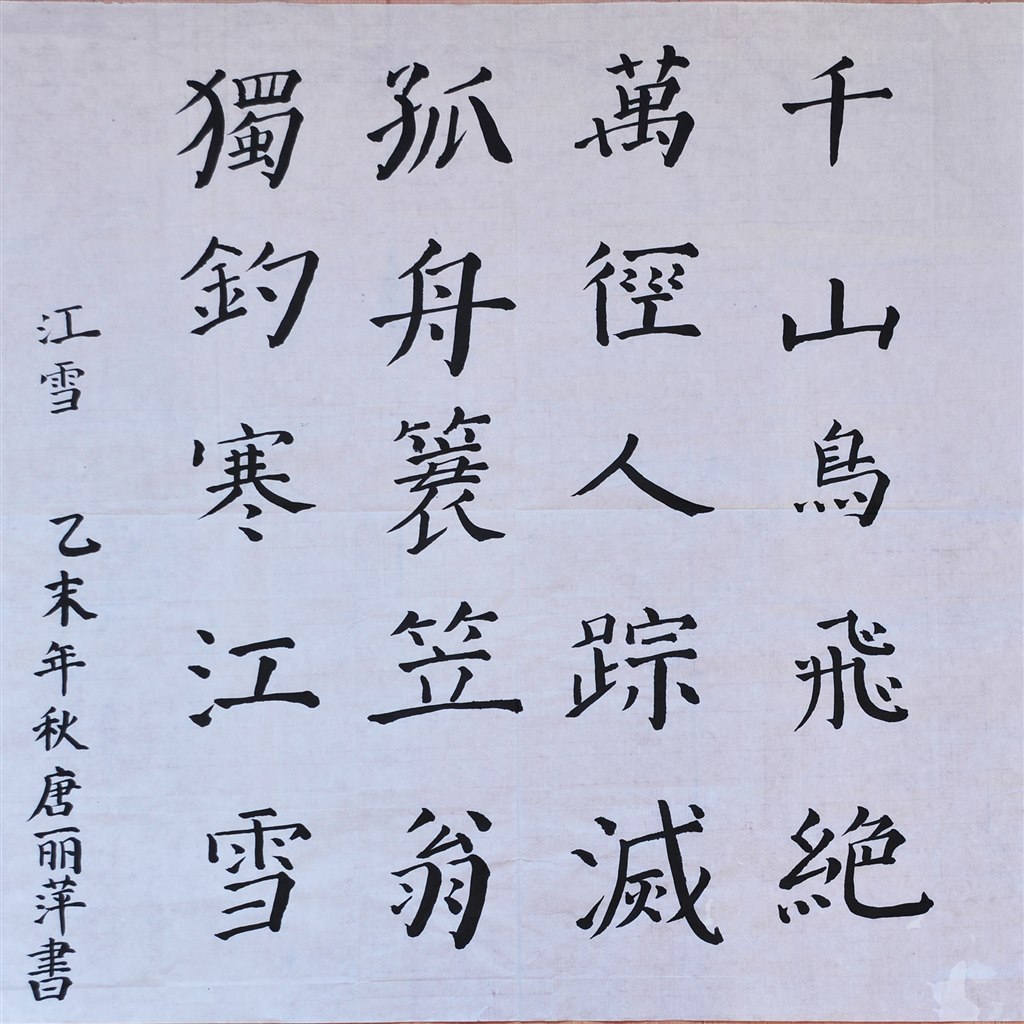 千山鳥飛絶
萬徑人踪滅
孤舟簑笠翁
獨釣寒江雪
江雪 乙末年秋唐丽萍書